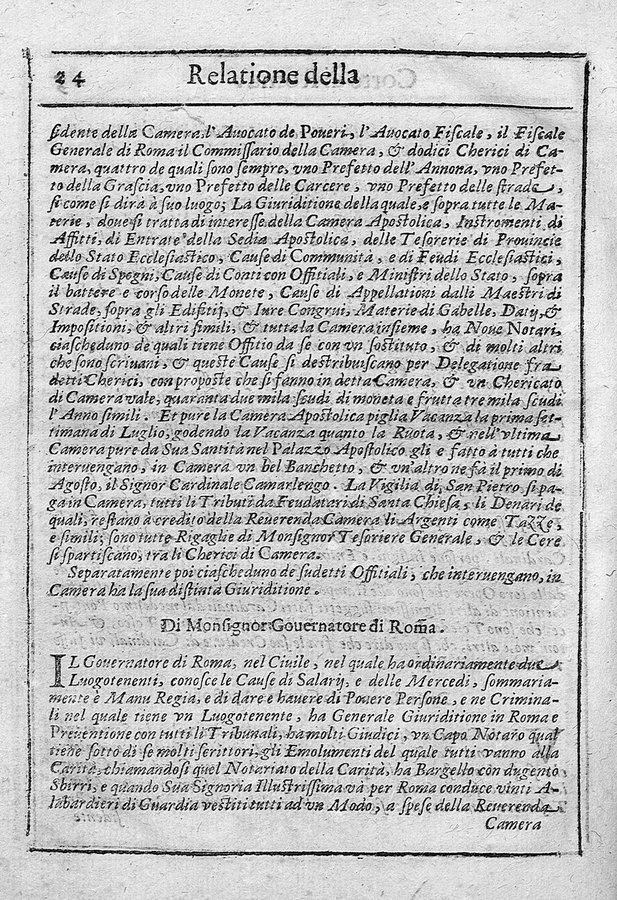 24 Relatione della
sidente della Camera, l'Auocato de Poueri, l'Auocato Fiscale, il Fiscale
Generale di Roma il Commissario della Camera, & dodici Cherici di Ca-
mera, quattro de quali sono sempre, vno Prefetto dell'Annona, vno Prefet-
to della Grascia, vno Prefetto delle Carcere, vno Prefetto delle strade,
si come si dirà à suo luogo; La Giuriditione della quale, e sopra tutte le Ma-
terie, doue si tratta di interesse della Camera Apostolica, Instromenti di
Affitti, di Entrate della Sedia Apostolica, delle Tesorerie di Prouincie
dello Stato Ecclesiastico, Cause di Communità, e di Feudi Ecclesiastici,
Cause di Spogni, Cause di Conti con Offitiali, e Ministri dello Stato, sopra
il battere e corso delle Monete, Cause di Appellationi dalli Maestri di
Strade, sopra gli Edifitij, & Iure Congrui, Materie di Gabelle, Datij, &
Impositioni, & altri simili, & tutta la Camera insieme, ha Noue Notari,
ciascheduno de quali tiene Offitio da se con vn sostituto, & di molti altri
che sono scriuani, & queste Cause si destribuiscano per Delegatione fra
detti Cherici, con proposte che si fanno in detta Camera, & vn Chericato
di Camera vale, quaranta due mila scudi di moneta e frutta tre mila scudi
l'Anno simili. Et pure la Camera Apostolica piglia Vacanza la prima set-
timana di Luglio, godendo la Vacanza quanto la Ruota, & nell'vltima
Camera pure da Sua Santità nel Palazzo Apostolico gli e fatto à tutti che
interuengano, in Camera vn bel Banchetto, & vn'altro ne fà il primo di
Agosto, il Signor Cardinale Camarlengo. La Vigilia di San Pietro si pa-
ga in Camera, tutti li Tributi da Feudatari di Santa Chiesa, li Denari de
quali, restano à credito della Reuerenda Camera li Argenti come Tazze,
e simili; sono tutte Rigaglie di Monsignor Tesoriere Generale, & le Cere
si spartiscano, tra li Cherici di Camera.
Separatamente poi ciascheduno de sudetti Offitiali, che interuengano, in
Camera ha la sua distinta Giuriditione.
Di Monsignor Gouernatore di Rom̃a.
IL Gouernatore di Roma, nel Ciuile, nel quale ha ordinariamente due
Luogotenenti, conosce le Cause di Salarij, e delle Mercedi, sommaria-
mente è Manu Regia, e di dare e hauere di Pouere Persone, e ne Crimina-
li nel quale tiene vn Luogotenente, ha Generale Giuriditione in Roma e
Preuentione con tutti li Tribunali, ha molti Giudici, vn Capo Notaro qual
tiene sotto di se molti scrittori, gli Emolumenti del quale tutti vanno alla
Carità, chiamandosi quel Notariato della Carità, ha Bargello con dugento
Sbirri, e quando Sua Signoria Illustrissima và per Roma conduce vinti A-
labardieri di Guardia vestiti tutti ad vn Modo, a spese della Reuerenda
Camera